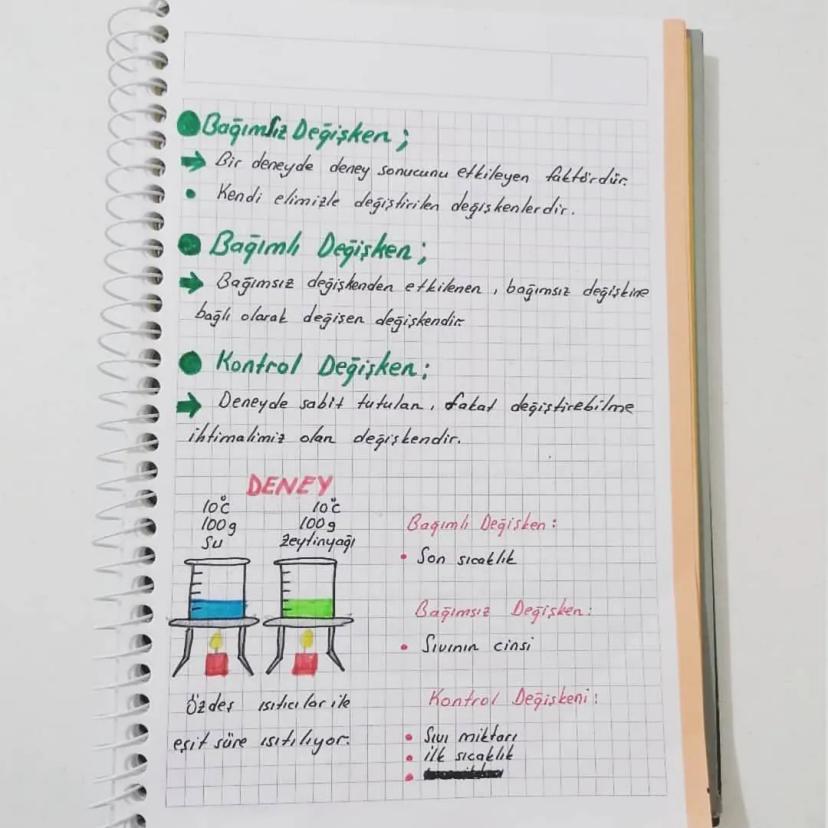 Bağımsız Değişken;
Bir deneyde deney sonucunu etkileyen faktördür.
Kendi elimizle değiştirilen değişkenlerdir.
Bağımlı Değişken;
Bağımsız değişkenden etkilenen, bağımsız değişkine
bağlı olarak değişen değişkendir.
Kontrol Değişken:
Deneyde sabit tutulan, fakat değiştirebilme
ihtimalimiz olan değişkendir.
DENEY
10°C
100g
Su
10°C
100g
Zeytinyağı
Özdeş ısıtıcılar ile
eşit süre ısıtılıyor.
Bağımlı Değişken:
Son sıcaklık
Bağımsız Değişken:
Sıvının cinsi
Kontrol Değişkeni:
Sıvı miktarı
İlk sıcaklık